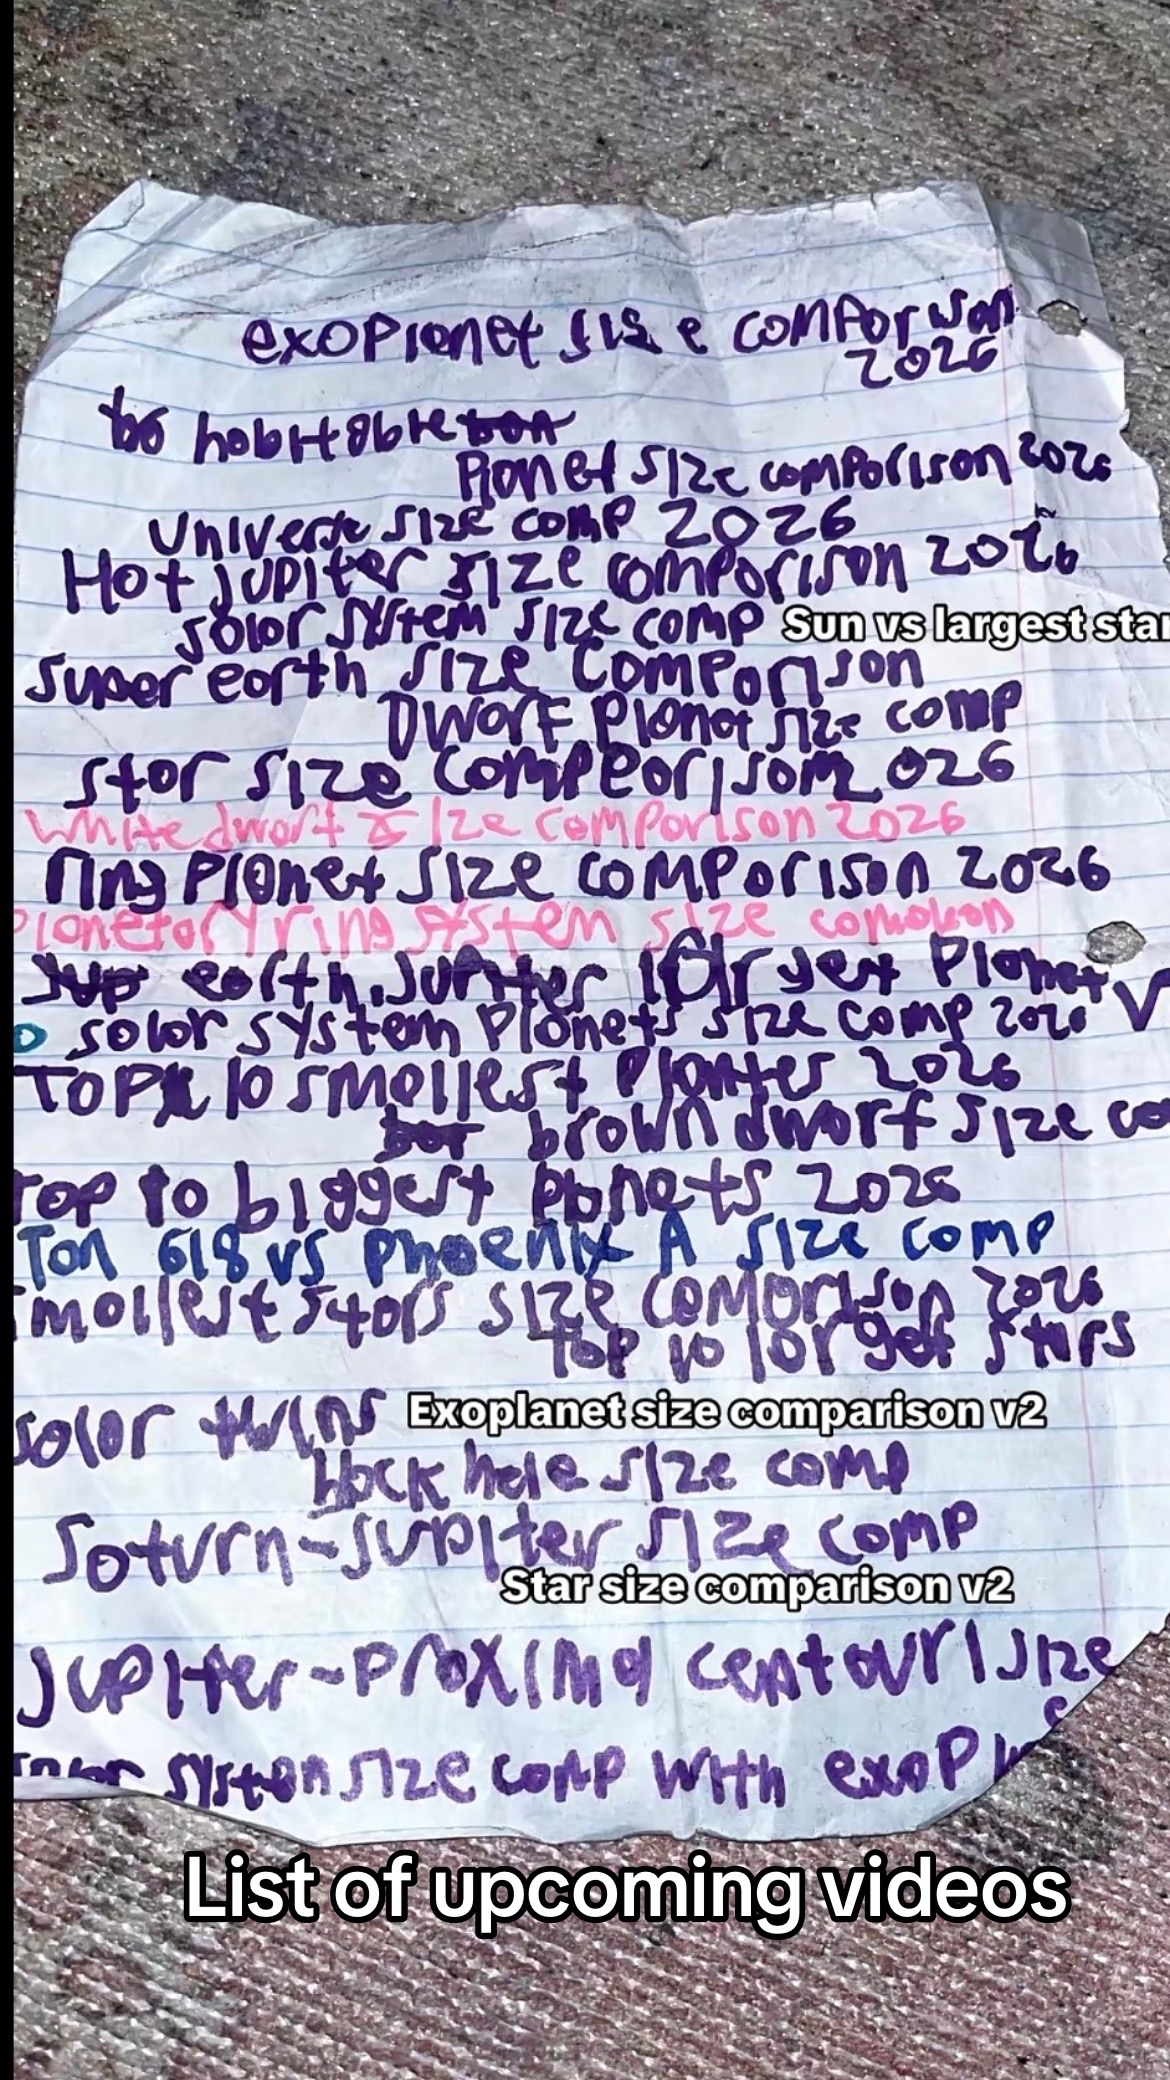 exoplanet size comparison
2026
habitable
Planet size comparison 2026
Universe size comp 2026
Hot jupiter size comparison 2026
solar system size comp Sun vs largest star
super earth size comparison
Dwarf planet size comp
star size compearison 2026
white dwarf size comparison 2026
ring planet size comparison 2026
planetary ring system size
earth, jupiter largest planet
solar system planets size comp 2026
TOP 10 smallest 2026
brown dwarf size co
Top 10 biggest planets 2026
Ton 618 vs phoenix A size comp
mallest stars size comparison 2026
Top 10 larget stars
solar twins Exoplanet size comparison v2
black hole size comp
Saturn-jupiter size comp
Star size comparison v2
jupiter-proxima centauri size
system size comp with exop
List of upcoming videos